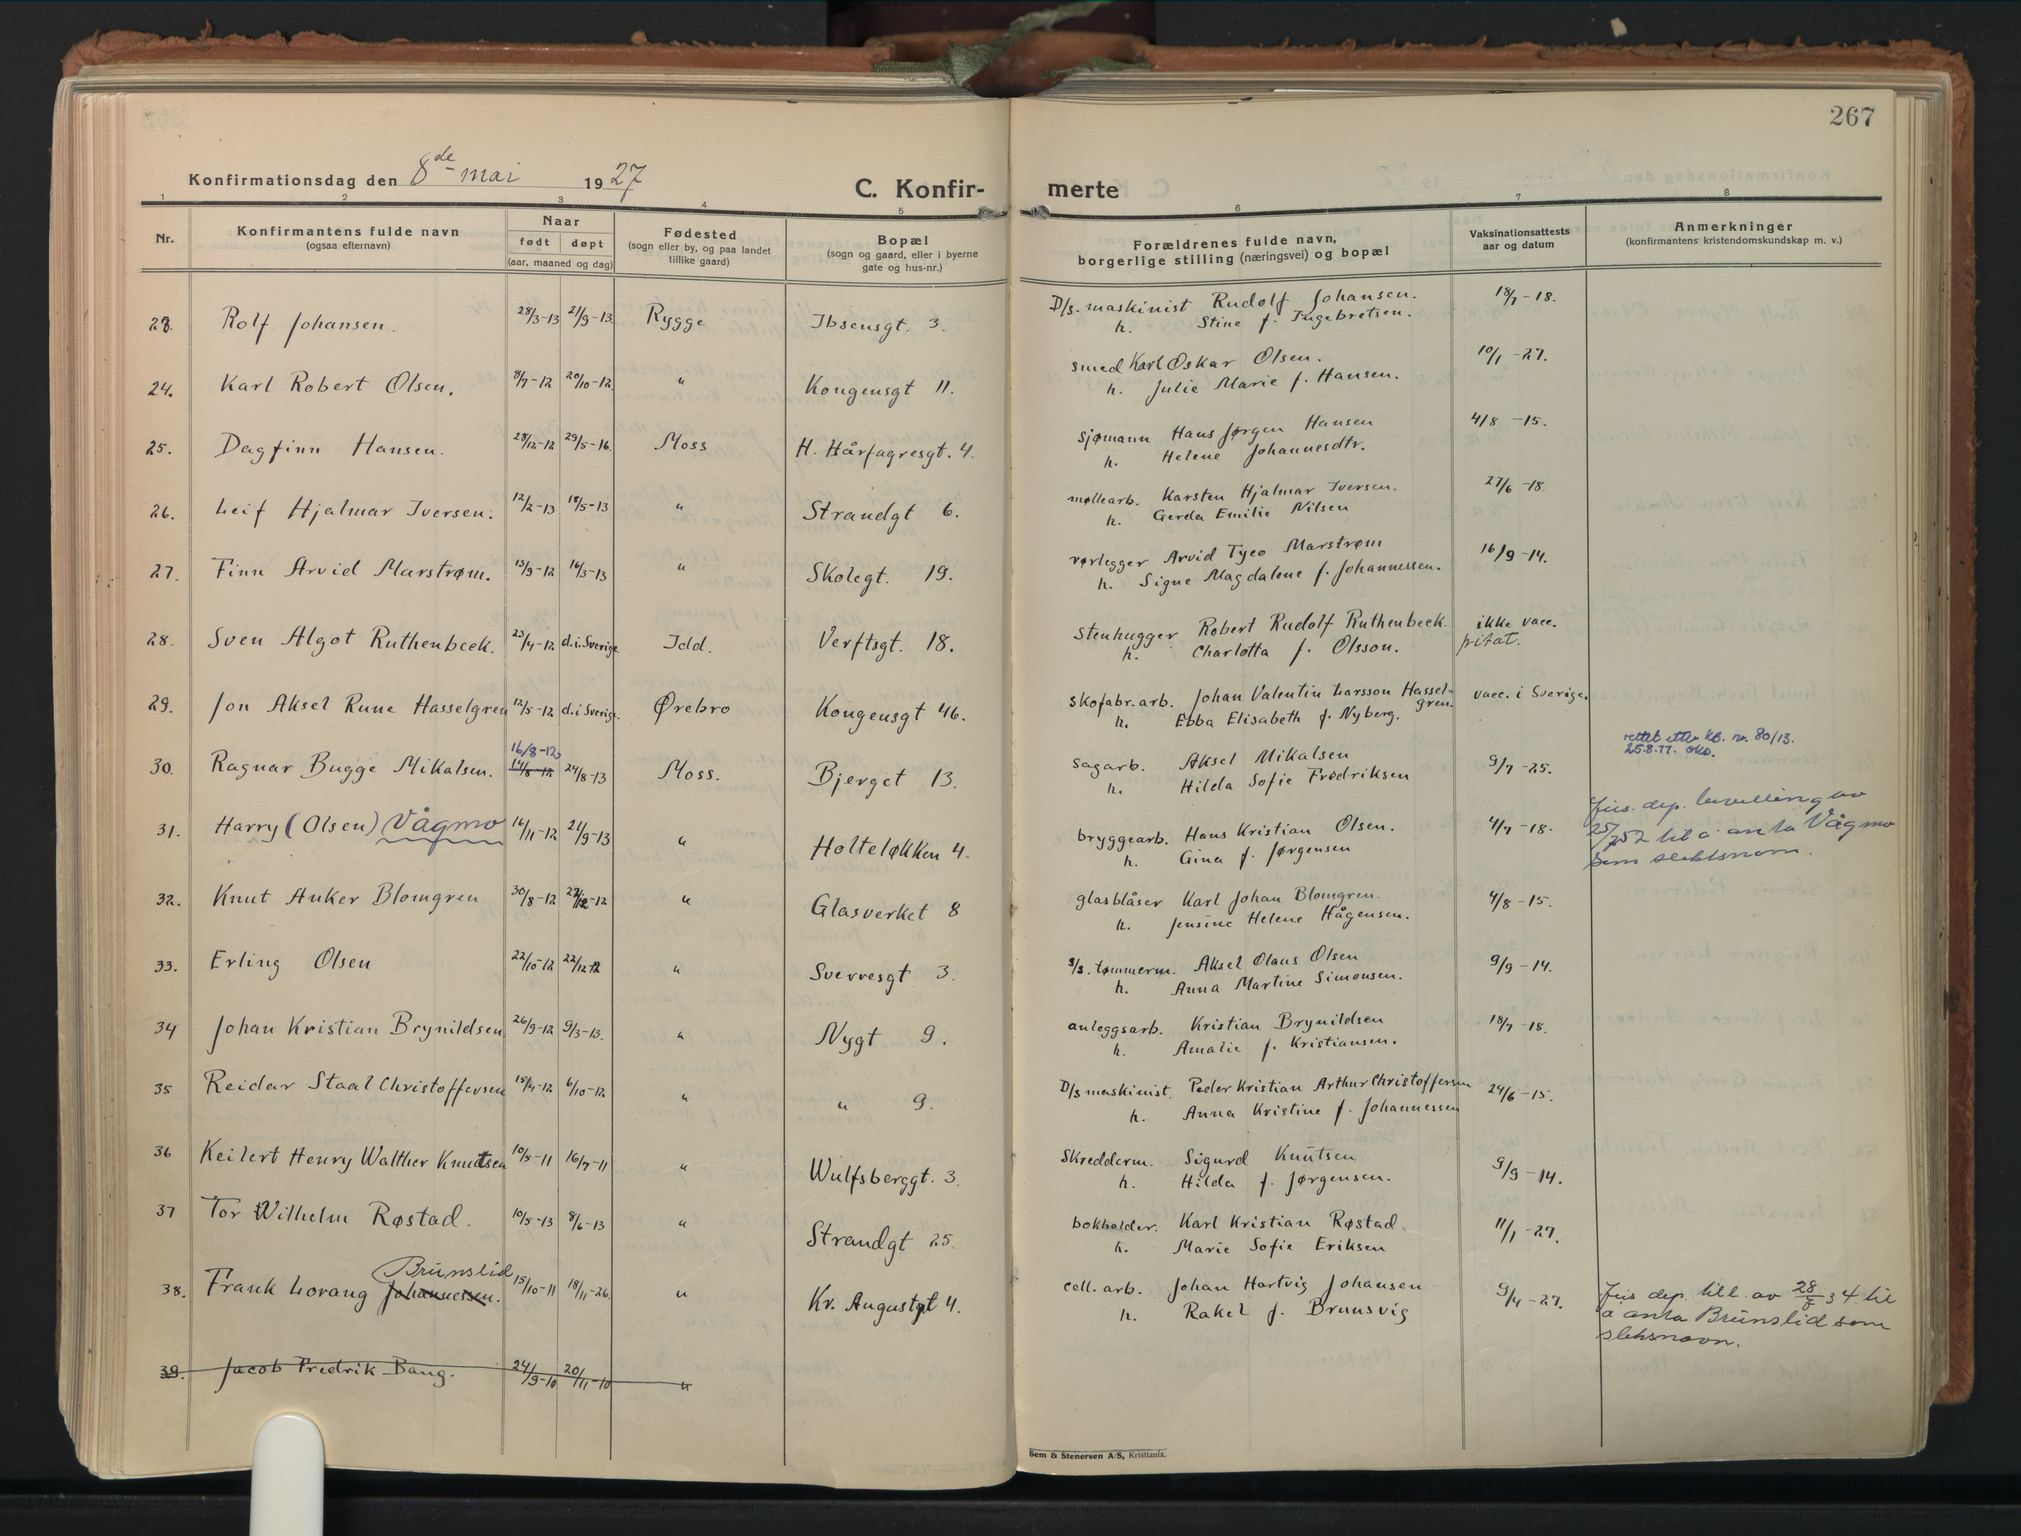 267
Konfirmationsdag den 8de mai 1927
C. Konfir- merte
1 2 3 4 5 6 7 8
Nr.
Konfirmantens fulde navn
(ogsaa efternavn)
Naar
født døpt
(aar, maaned og dag)
Fødested
(sogn eller by, og paa landet
tillike gaard)
Bopæl
(sogn og gaard, eller i byerne
gate og hus-nr.)
Forældrenes fulde navn,
borgerlige stilling (næringsvei) og bopæl
Vaksinationsattests
aar og datum
Anmerkninger
(konfirmantens kristendomskundskap m. v.)
23. Rolf Johansen. 28/3-13 21/9-13. Rygge Ibsensgt. 3. D/s. maskinist Rudolf Johansen. 18/7-18.
h. Stine f. Ingebretsen.
24. Karl Robert Olsen. 8/7-12 20/10-12. " Kongensgt 11. smed Karl Oskar Olsen. 10/1-27.
h. Julie Marie f. Hansen.
25. Dagfinn Hansen. 28/12-12 29/5-16. Moss H. Hårfagresgt. 4. sjømann Hans Jørgen Hansen 4/8-15.
h. Helene Johannesdtr.
26. Leif Hjalmar Iversen. 12/2-13 18/5-13 " Strandgt 6. møllearb. Karsten Hjalmar Iversen. 27/6-18.
h. Gerda Emilie Nilsen
27. Finn Arvid Marstrøm. 13/9-12 16/3-13 " Skolegt. 19. rørlegger Arvid Tyco Marstrøm 16/9-14.
h. Signe Magdalene f. Johannessen.
28. Sven Algot Ruthenbeck. 23/4-12 d.i.Sverige Idd. Verftsgt. 18. Stenhugger Robert Rudolf Ruthenbeck. ikke vacc.
h. Charlotta f. Olsson. pitat.
29. Jon Aksel Rune Hasselgren 12/5-12 d.i Sverige. Ørebro Kongensgt 46. skofabr.arb. Johan Valentin Larsson Hassel- vacc. i Sverige.
gren.
h. Ebba Elisabeth f. Nyberg.
16/8-12 rettet etter kb. nr. 80/13.
25.8.77. oko.
30. Ragnar Bugge Mikalsen. 14/8-12 24/8-13 Moss. Bjerget 13. sagarb. Aksel Mikalsen 9/7-25.
h. Hilda Sofie Fredriksen
31. Harry (Olsen) Vågmo 16/11-12 21/9-13 " Holteløkken 4. bryggearb. Hans Kristian Olsen. 4/7-18. Jus. dep. bevilling av
h. Gina f. Jørgensen 25/7 52 til å anta Vågmo
som slektsnavn.
32. Knut Anker Blomgren 30/8-12 22/12-12 " Glasverket 8 glasblåser Karl Johan Blomgren. 4/8-15.
h. Jensine Helene Hågensen.
33. Erling Olsen 22/10-12 22/12-12 " Sverresgt 3. s/s. tømmerm. Aksel Olaus Olsen 9/9-14.
h. Anna Martine Simonsen.
34 Johan Kristian Brynildsen 26/9-12 9/3-13. " Nygt 9. anleggsarb. Kristian Brynildsen 18/7-18.
h. Amalie f. Kristiansen.
35 Reidar Staal Christoffersen 15/4-12 6/10-12 " " 9. D/s maskinist. Peder Kristian Arthur Christoffersen 24/6-15.
h. Anna Kristine f. Johannessen
36 Keilert Henry Walther Knutsen 10/5-11 16/7-11 " Wulfsberggt. 3. Skredderm. Sigurd Knutsen 9/9-14.
h. Hilda f. Jørgensen.
37 Tor Wilhelm Røstad. 10/5-13 8/6-13 " Strandgt 25. bokholder. Karl Kristian Røstad. 11/1-27.
h. Marie Sofie Eriksen
Brunslid
38. Frank Lorang Johannessen. 15/10-11 18/11-26. " Kr. Augustgt 4. cell. arb. Johan Hartvig Johansen 9/4-27. Jus dep. till. av 28/8 34 til
h. Rakel f. Brunsvig å anta Brunslid som
slektsnavn.
39. Jacob Fredrik Bang. 24/9-10 20/11-10 "
Sem & Stenersen A/S, Kristiania.